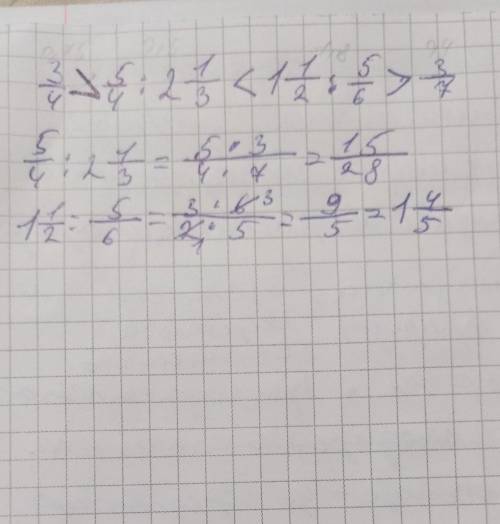 3/4 > 5/4 : 2 1/3 < 1 1/2 : 5/6 > 3/7
5/4 : 2 1/3 = 5 · 3 / 4 · 7 = 15/28
1 1/2 : 5/6 = 3 · 6 3 / 2 1 · 5 = 9/5 = 1 4/5